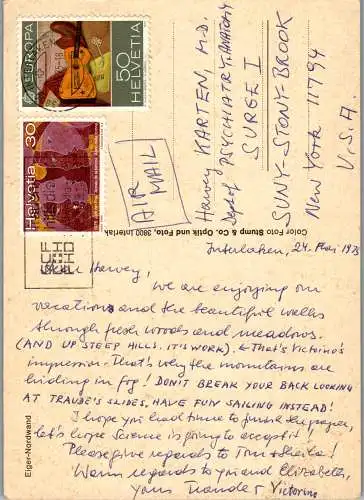 EUROPA
50
HELVETIA
30
Helvetia
AIR
MAIL
Harvey KARTEN, M.D.
Dept of PSYCHIATRY + ANATOMY
SURGE I
SUNY-STONY-BROOK
New York 11794
U.S.A.
Color Foto Stump & Co. Optik und Foto, 3800 Interlaken
Eiger-Nordwand
Interlaken, 24. Mai 1975
Dear Harvey,
We are enjoying our
vacations and the beautiful walks
through fresh woods and meadows.
(AND UP STEEP HILLS. IT'S WORK). ← That's Victorino's
impression. That's why the mountains are
hiding in fog! DON'T BREAK YOUR BACK LOOKING
AT TRAUDE'S SLIDES, HAVE FUN SAILING INSTEAD!
I hope you had time to finish the paper,
let's hope Science is going to accept it!
Please give regards to Tom + Sheila!
Warm regards to you and Elizabeth,
your Traude + Victorino